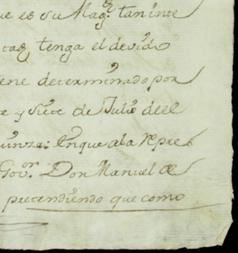 ue es su Mag.d tan inte
tas tenga el devido
iene determinado por
e y siete de Julio de el
unza: en que a la repre
Gov.or Don Manuel de
pretendiendo que como